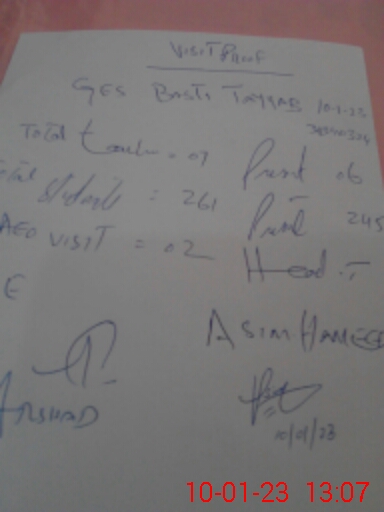 VISIT PROOF
GES BASTI TAYYAB 10-1-23
Total teacher = 07 Present 06
Total students = 261 Present 245
AEO VISIT = 02 Head T
E
ASIM HAMEED
ARSHAD
10/01/23
10-01-23 13:07